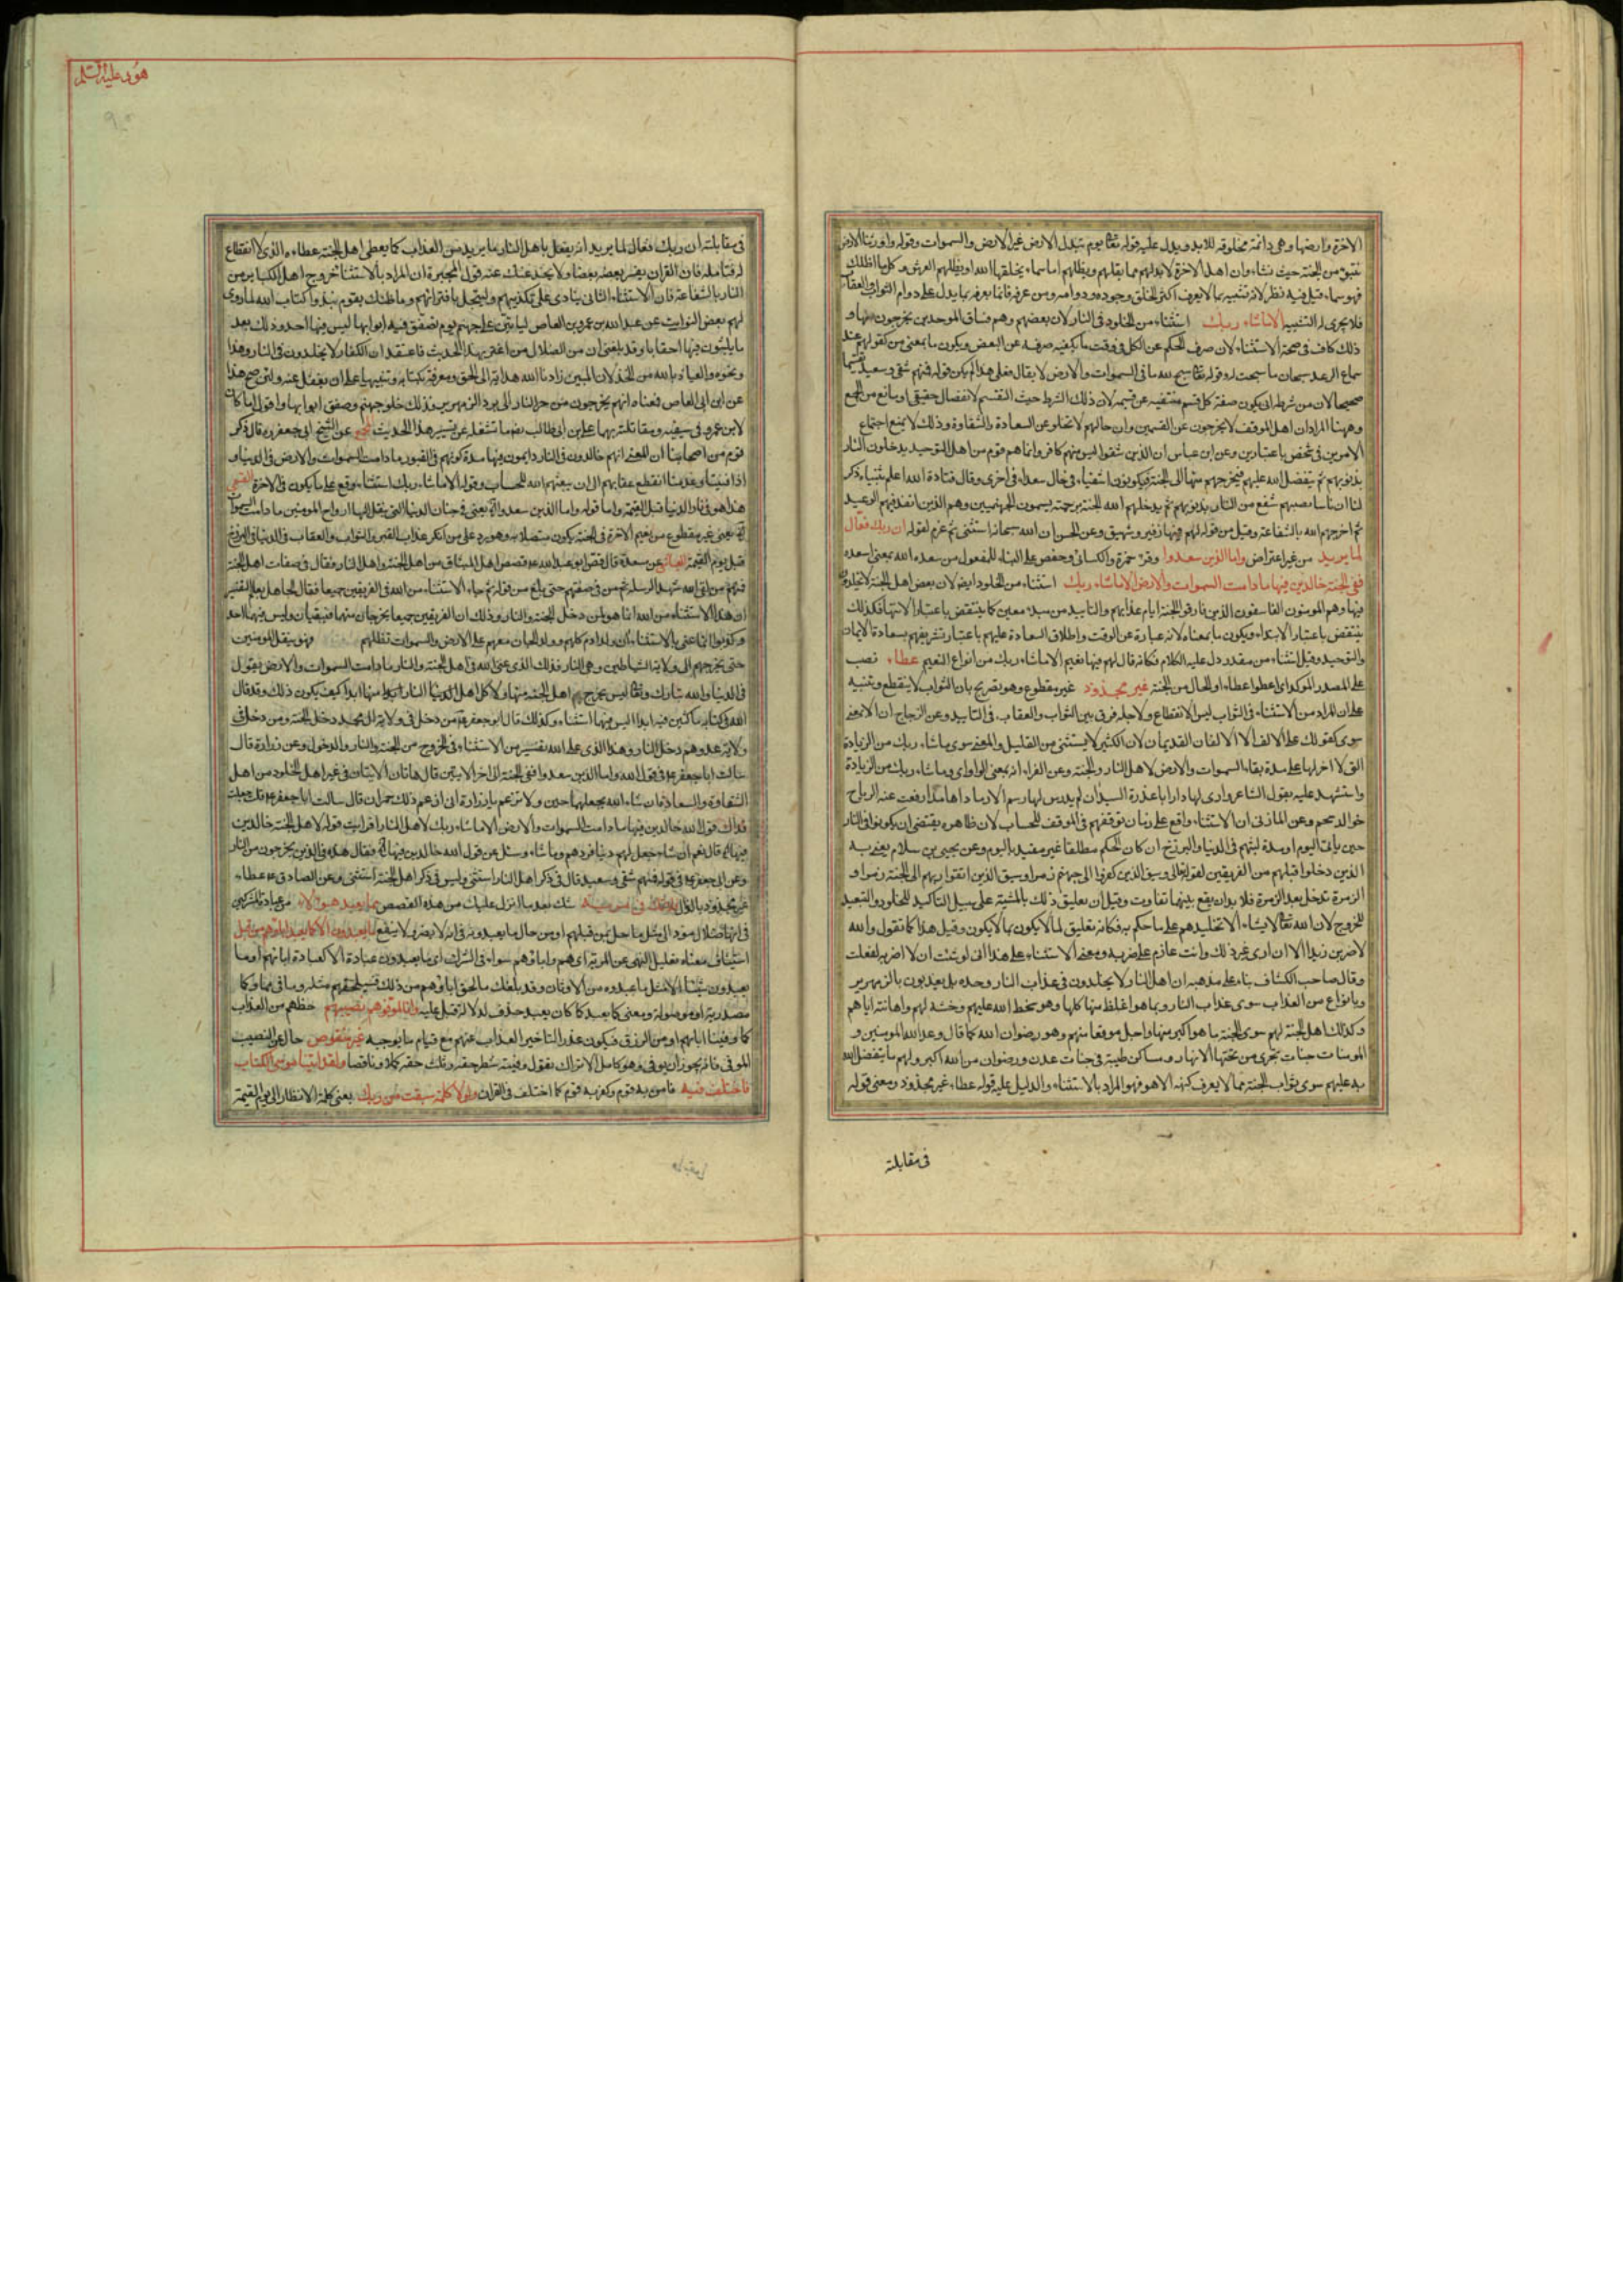 الاخرة وارضها وهى دائمة مخلوقه للابد ويدل عليه قوله تعالى يوم تبدل الارض غير الارض والسموات وقوله واورثنا الارض
نتبوء من الجنة حيث نشاء وان اهل الاخرة لا بد لهم مما يقلهم ويظلهم اما سماء يخلقها الله او يظلهم العرش وكل ما اظلك
فهو سماء وقيل فيه نظر لانه تشبيه بما لا يعرف اكثر الخلق وجوده ودوامه ومن عرفه فانما يعرفه بما يدل على دوام الثواب والعقاب
فلا يجرى له التشبيه الا ما شاء ربك استثناء من الخلود فى النار لان بعضهم وهم فساق الموحدين يخرجون منها و
ذلك كاف فى صحة الاستثناء لان صرف الحكم عن الكل فى وقت ما يكفيه صرفه عن البعض ويكون ما بمعنى من كقولهم عند
سماع الرعد سبحان ما سبحت له وقوله تعالى سبح لله ما فى السموات والارض لا يقال فعلى هذا لم يكن قوله فمنهم شقى وسعيد تقسيما
صحيحا لان من شرطه ان يكون صفة كل قسم منتفيه عن قسيمه لان ذلك الشرط حيث التقسيم لانفصال حقيقى او مانع من الجمع
وههنا المراد ان اهل الموقف لا يخرجون عن القسمين وان حالهم لا تخلو عن السعادة والشقاوة وذلك لا يمنع اجتماع
الامرين فى شخص باعتبارين وعن ابن عباس ان الذين شقوا ليس منهم كافر وانما هم قوم من اهل التوحيد يدخلون النار
بذنوبهم ثم يتفضل الله عليهم فيخرجهم منها الى الجنة فيكونون اشقياء فى حال سعداء فى اخرى وقال قتادة الله اعلم بثنياه ذكر
لنا ان ناسا يصيبهم سفع من النار بذنوبهم ثم يدخلهم الله الجنة برحمته يسمون الجهنميين وهم الذين انفذ فيهم الوعيد
ثم اخرجهم الله بالشفاعة وقيل من قوله لهم فيها زفير وشهيق وعن الحسن ان الله سبحانه استثنى ثم عزم لقوله ان ربك فعال
لما يريد من غير اعتراض واما الذين سعدوا وقرء حمزة والكسائى وحفص على البناء للمفعول من سعده الله بمعنى اسعده
ففى الجنة خالدين فيها ما دامت السموات والارض الا ما شاء ربك استثناء من الخلود ايضا لان بعض اهل الجنة لا يخلدون
فيها وهم المومنون الفاسقون الذين فارقوا الجنة ايام عذابهم والتابيد من مبدء معين كما ينتقض باعتبار الانتهاء فكذلك
ينتقض باعتبار الابتداء ويكون ما بمعناه لانه عبارة عن الوقت واطلاق السعادة عليهم باعتبار تشريفهم بسعادة الايمان
والتوحيد وقيل استثناء من مقدر دل عليه الكلام فكانه قال لهم فيها نعيم الا ما شاء ربك من انواع النعيم عطاء نصب
على المصدر الموكد اى اعطوا عطاء او الحال من الجنة غير مجذوذ غير مقطوع وهو تصريح بان الثواب لا ينقطع وتنبيه
على ان المراد من الاستثناء فى الثواب ليس الانقطاع ولاجله فرق بين الثواب والعقاب فى التابيد وعن الزجاج ان الا بمعنى
سوى كقولك على الالف الا الالفان القديمان لان الكثير لا يستثنى من القليل والمعنى سوى ما شاء ربك من الزيادة
التى لا اخر لها على مدة بقاء السموات والارض لاهل النار والجنة وعن الفراء انه بمعنى الواو اى وما شاء ربك من الزيادة
واستشهد عليه بقول الشاعر وارى لها دارا باغدرة السيدان لم يدرس لها رسم الا رمادا هامدا رفعت عنه الرياح
خوالد سحم وعن المازنى ان الاستثناء واقع على زمان توقفهم فى الموقف للحساب لان ظاهره يقتضى ان يكونوا فى النار
حين ياتى اليوم او مدة لبثهم فى الدنيا والبرزخ ان كان الحكم مطلقا غير مقيد باليوم وعن يحيى بن سلام يعنى به
الذين دخلوا قبلهم من الفريقين لقوله تعالى وسيق الذين كفروا الى جهنم زمرا وسيق الذين اتقوا ربهم الى الجنة زمرا و
الزمرة تدخل بعد الزمرة فلا بد ان يقع بينهما تفاوت وقيل ان تعليق ذلك بالمشية على سبيل التاكيد للخلود والتبعيد
للخروج لان الله تعالى لا يشاء الا تخليدهم على ما حكم به فكانه تعليق لما لا يكون بما لا يكون وقيل هذا كما تقول والله
لاضربن زيدا الا ان ارى غير ذلك وانت عازم على ضربه ومعنى الاستثناء على هذا انى لو شئت ان لا اضربه لفعلت
وقال صاحب الكشاف بناء على مذهبه ان اهل النار لا يخلدون فى عذاب النار وحده بل يعذبون بالزمهرير
وبانواع من العذاب سوى عذاب النار وبما هو اغلظ منها كلها وهو سخط الله عليهم وخسئه لهم واهانته اياهم
وكذلك اهل الجنة لهم سوى الجنة ما هو اكبر منها واجل موقعا منهم وهو رضوان الله كما قال وعد الله المومنين و
المومنات جنات تجرى من تحتها الانهار ومساكن طيبة فى جنات عدن ورضوان من الله اكبر ولهم ما يتفضل الله
به عليهم سوى ثواب الجنة مما لا يعرف كنهه الا هو فهو المراد بالاستثناء والدليل عليه قوله عطاء غير مجذوذ ومعنى قوله
فى مقابلته
هود عليه السلم
فى مقابلته ان ربك فعال لما يريد انه يفعل باهل النار ما يريد من العذاب كما يعطى اهل الجنة عطاءه الذى لا انقطاع
له فتامله فان القران يفسر بعضه بعضا ولا يخدعنك عنه قول المجبرة ان المراد بالاستثناء خروج اهل الكباير من
النار بالشفاعة فان الاستثناء الثانى ينادى على تكذيبهم ويسجل بافترائهم وما ظنك بقوم نبذوا كتاب الله لما روى
لهم بعض النوابت عن عبد الله بن عمرو بن العاص لياتين على جهنم يوم تصفق فيه ابوابها ليس فيها احد وذلك بعد
ما يلبثون فيها احقابا وقد بلغنى ان من الضلال من اغتر بهذا الحديث فاعتقد ان الكفار لا يخلدون فى النار وهذا
ونحوه والعياذ بالله من الخذلان المبين زادنا الله هداية الى الحق ومعرفة بكتابه وتنبيها على ان نعقل عنه ولئن صح هذا
عن ابن ابى العاص فمعناه انهم يخرجون من حر النار الى برد الزمهرير فذلك خلو جهنم وصفق ابوابها واقول اما كان
لابن عمرو فى سيفيه ومقاتلته بهما على بن ابى طالب رضه ما تشغله عن تسيير هذا الحديث المجمع عن الشيخ ابى جعفر ره قال ذكر
قوم من اصحابنا ان المعنى انهم خالدون فى النار دايمون فيها مدة كونهم فى القبور ما دامت السموات والارض فى الدنيا و
اذا فنيتا وعدمتا انقطع عقابهم الى ان يبعثهم الله للحساب وقوله الا ما شاء ربك استثناء وقع على ما يكون فى الاخرة القمى
هذا هو فى نار الدنيا قبل القيمة واما قوله واما الذين سعدوا الاية يعنى فى جنات الدنيا التى ينقل اليها ارواح المومنين ما دامت السموات
الاية يعنى غير مقطوع من نعيم الاخرة فى الجنة يكون متصلا به وهو رد على من انكر عذاب القبر والثواب والعقاب فى الدنيا فى البرزخ
قبل يوم القيمة العياشى عن مسعدة قال قص ابو عبد الله ع قصص اهل الميثاق من اهل الجنة واهل النار فقال فى صفات اهل الجنة
فمنهم من لقى الله شهيدا لرسله ثم من فى صفتهم حتى بلغ من قوله ثم جاء الاستثناء من الله فى الفريقين جميعا فقال الجاهل بعلم التفسير
ان هذا الاستثناء من الله انما هو لمن دخل الجنة والنار وذلك ان الفريقين جميعا يخرجان منهما فتبقيان وليس فيهما احد
وكذبوا انما عنى بالاستثناء ان ولد ادم كلهم وولد الجان معهم على الارض والسموات تظلهم فهو ينقل المومنين
حتى يخرجهم الى ولاية الشياطين وهى النار فذلك الذى عنى الله فى اهل الجنة والنار ما دامت السموات والارض يقول
فى الدنيا والله تبارك وتعالى ليس بمخرج اهل الجنة منها ولا كل اهل الدنيا النار ابدا منها ابدا كيف يكون ذلك وقد قال
الله فى كتابه ماكثين فيه ابدا ليس فيها استثناء وكذلك قال ابو جعفر ع من دخل فى ولاية ال محمد دخل الجنة ومن دخل فى
ولاية عدوهم دخل النار وهذا الذى عنى الله بتفسير من الاستثناء فى الخروج من الجنة والنار والدخول وعن زرارة قال
سالت ابا جعفر ع فى قول الله واما الذين سعدوا ففى الجنة الى اخر الايتين قال هاتان الايتان فى غير اهل الخلود من اهل
الشقاوة والسعادة ان شاء الله يجعلهما حين ولا تزعم يا زرارة انى ازعم ذلك حمران قال سالت ابا جعفر ع قلت جعلت
فداك قول الله خالدين فيها ما دامت السموات والارض الا ما شاء ربك لاهل النار افرايت قوله لاهل الجنة خالدين
فيها الاية قال نعم ان شاء جعل لهم دنيا فردهم وما شاء وسئل عن قول الله خالدين فيها الاية فقال هذه فى الذين يخرجون من النار
وعن ابى جعفر ع فى قوله فمنهم شقى وسعيد قال فى ذكر اهل النار استثنى وليس فى ذكر اهل الجنة استثنى وعن الصادق ع عطاء
غير مجذوذ بالذال فلا تك فى مرية شك بعد ما انزل عليك من هذه القصص مما يعبد هؤلاء من عبادة المشركين
فى انها ضلال مود الى مثل ما حل بمن قبلهم او من حال ما يعبدونه فى انه لا يضر ولا ينفع ما يعبدون الا كما يعبد اباؤهم من قبل
استيناف معناه تعليل النهى عن المرية اى هم واباؤهم سواء فى الشرك اى ما يعبدون عبادة الا كعبادة ابائهم او ما
يعبدون شيئا الا مثل ما عبدوه من الاوثان وقد بلغك ما لحق اباؤهم من ذلك فسيلحقهم مثله وما فى مما وكما
مصدرية او موصولة ومعنى كما يعبد كما كان يعبد حذف لدلالة قبل عليه وانا لموفوهم نصيبهم حظهم من العذاب
كما وفينا ابائهم او من الرزق فيكون عذر التاخير العذاب عنهم مع قيام ما يوجبه غير منقوص حال عن النصيب
الموفى فانه يجوز ان يوفى وهو كامل الا تراك تقول وفيته شطر حقه وثلث حقه كملا وناقصا ولقد اتينا موسى الكتاب
فاختلف فيه فامن به قوم وكفر به قوم كما اختلف فى القران ولولا كلمة سبقت من ربك يعنى كلمة الانظار الى يوم القيمة